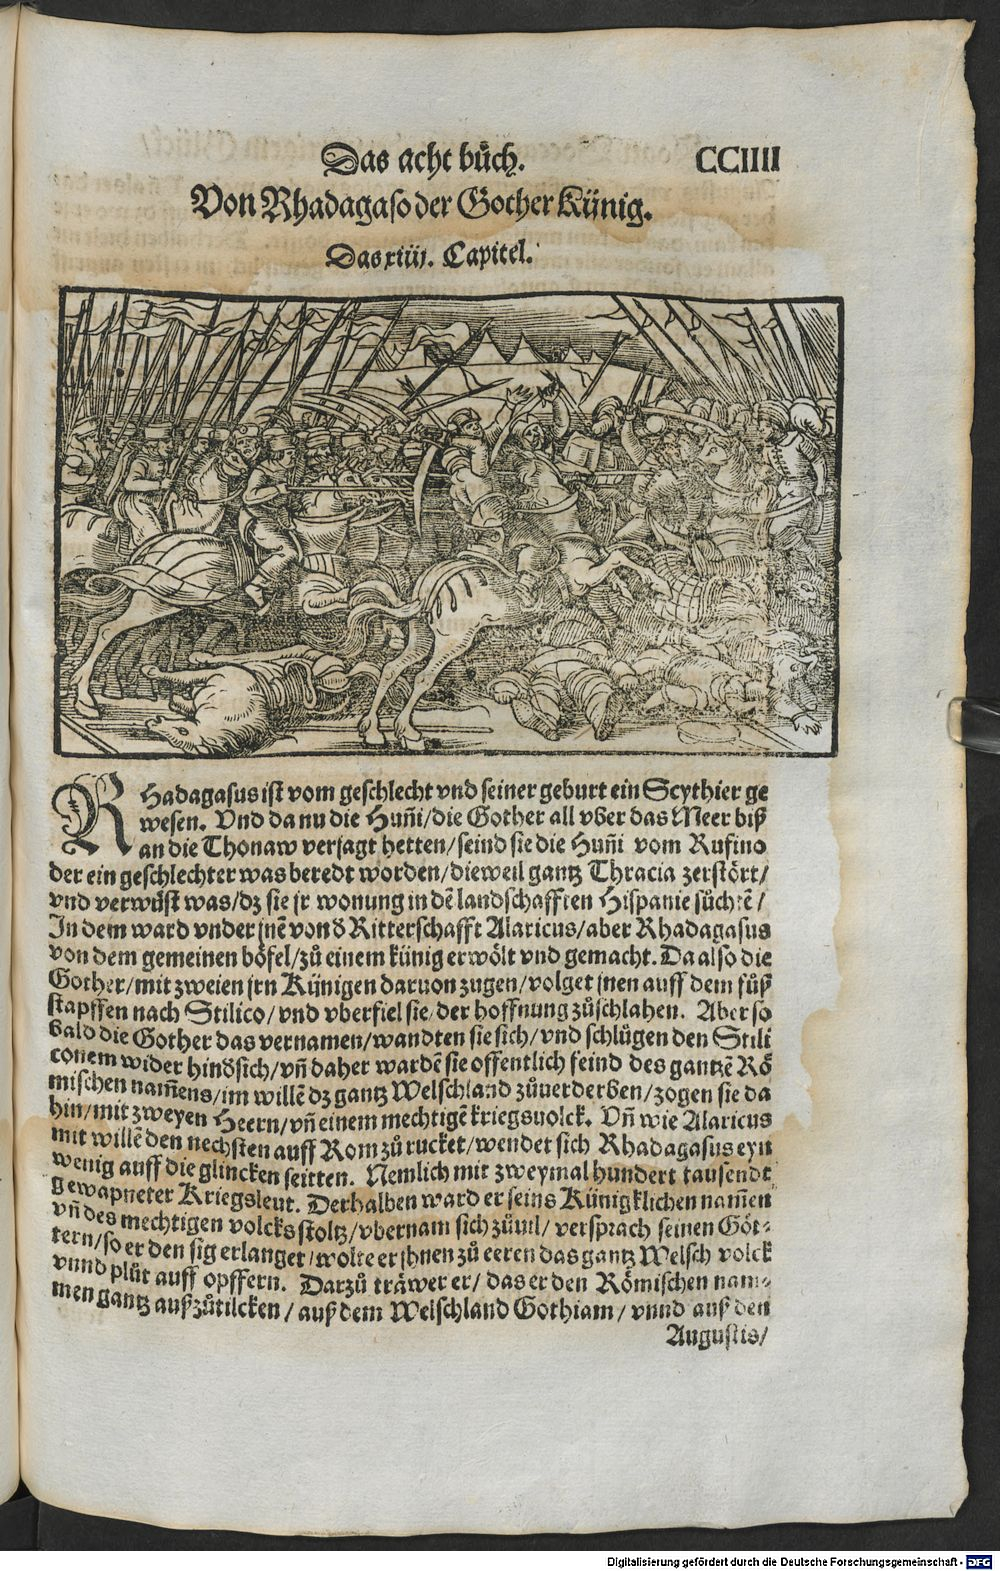 Das acht bůch. CCIIII
Von Rhadagaso der Gother Künig.
Das xiiij. Capitel.
RHadagasus ist vom geschlecht vnd seiner geburt ein Scythier ge
wesen. Vnd da nu die Hun̄i/die Gother all vber das Meer biß
an die Thonaw verjagt hetten/seind sie die Hun̄i vom Rufino
der ein geschlechter was beredt worden/dieweil gantz Thracia zerstört/
vnd verwüst was/dz sie jr wonung in dē landschafften Hispanie sůchtē/
In dem ward vnder jnē von d̄ Ritterschafft Alaricus/aber Rhadagasus
von dem gemeinen böfel/zů einem künig erwölt vnd gemacht. Da also die
Gother/mit zweien jrn Künigen daruon zugen/volget jnen auff dem fůß
stapffen nach Stilico/vnd vberfiel sie/der hoffnung zůschlahen. Aber so
bald die Gother das vernamen/wandten sie sich/vnd schlůgen den Stili
conem wider hind̄sich/vn̄ daher wardē sie offentlich feind des gantzē Rö
mischen nam̄ens/im willē dz gantz Welschland zůuerderben/zogen sie da
hin/mit zweyen Heern/vn̄ einem mechtigē kriegsuolck. Vn̄ wie Alaricus
mit willē den nechsten auff Rom zů rucket/wendet sich Rhadagasus eyn
wenig auff die glincken seitten. Nemlich mit zweymal hundert tausendt
gewapneter Kriegsleut. Derhalben ward er seins Künigklichen nam̄en
vn̄ des mechtigen volcks stoltz/vbernam sich zůuil/versprach seinen Göt-
tern/so er den sig erlanget/wolte er jhnen zů eeren das gantz Welsch volck
vnnd plůt auff opffern. Darzů träwer er/das er den Römischen nam-
men gantz außzůtilcken/auß dem Welschland Gothiam/vnnd auß den
Augustis/
Digitalisierung gefördert durch die Deutsche Forschungsgemeinschaft - DFG